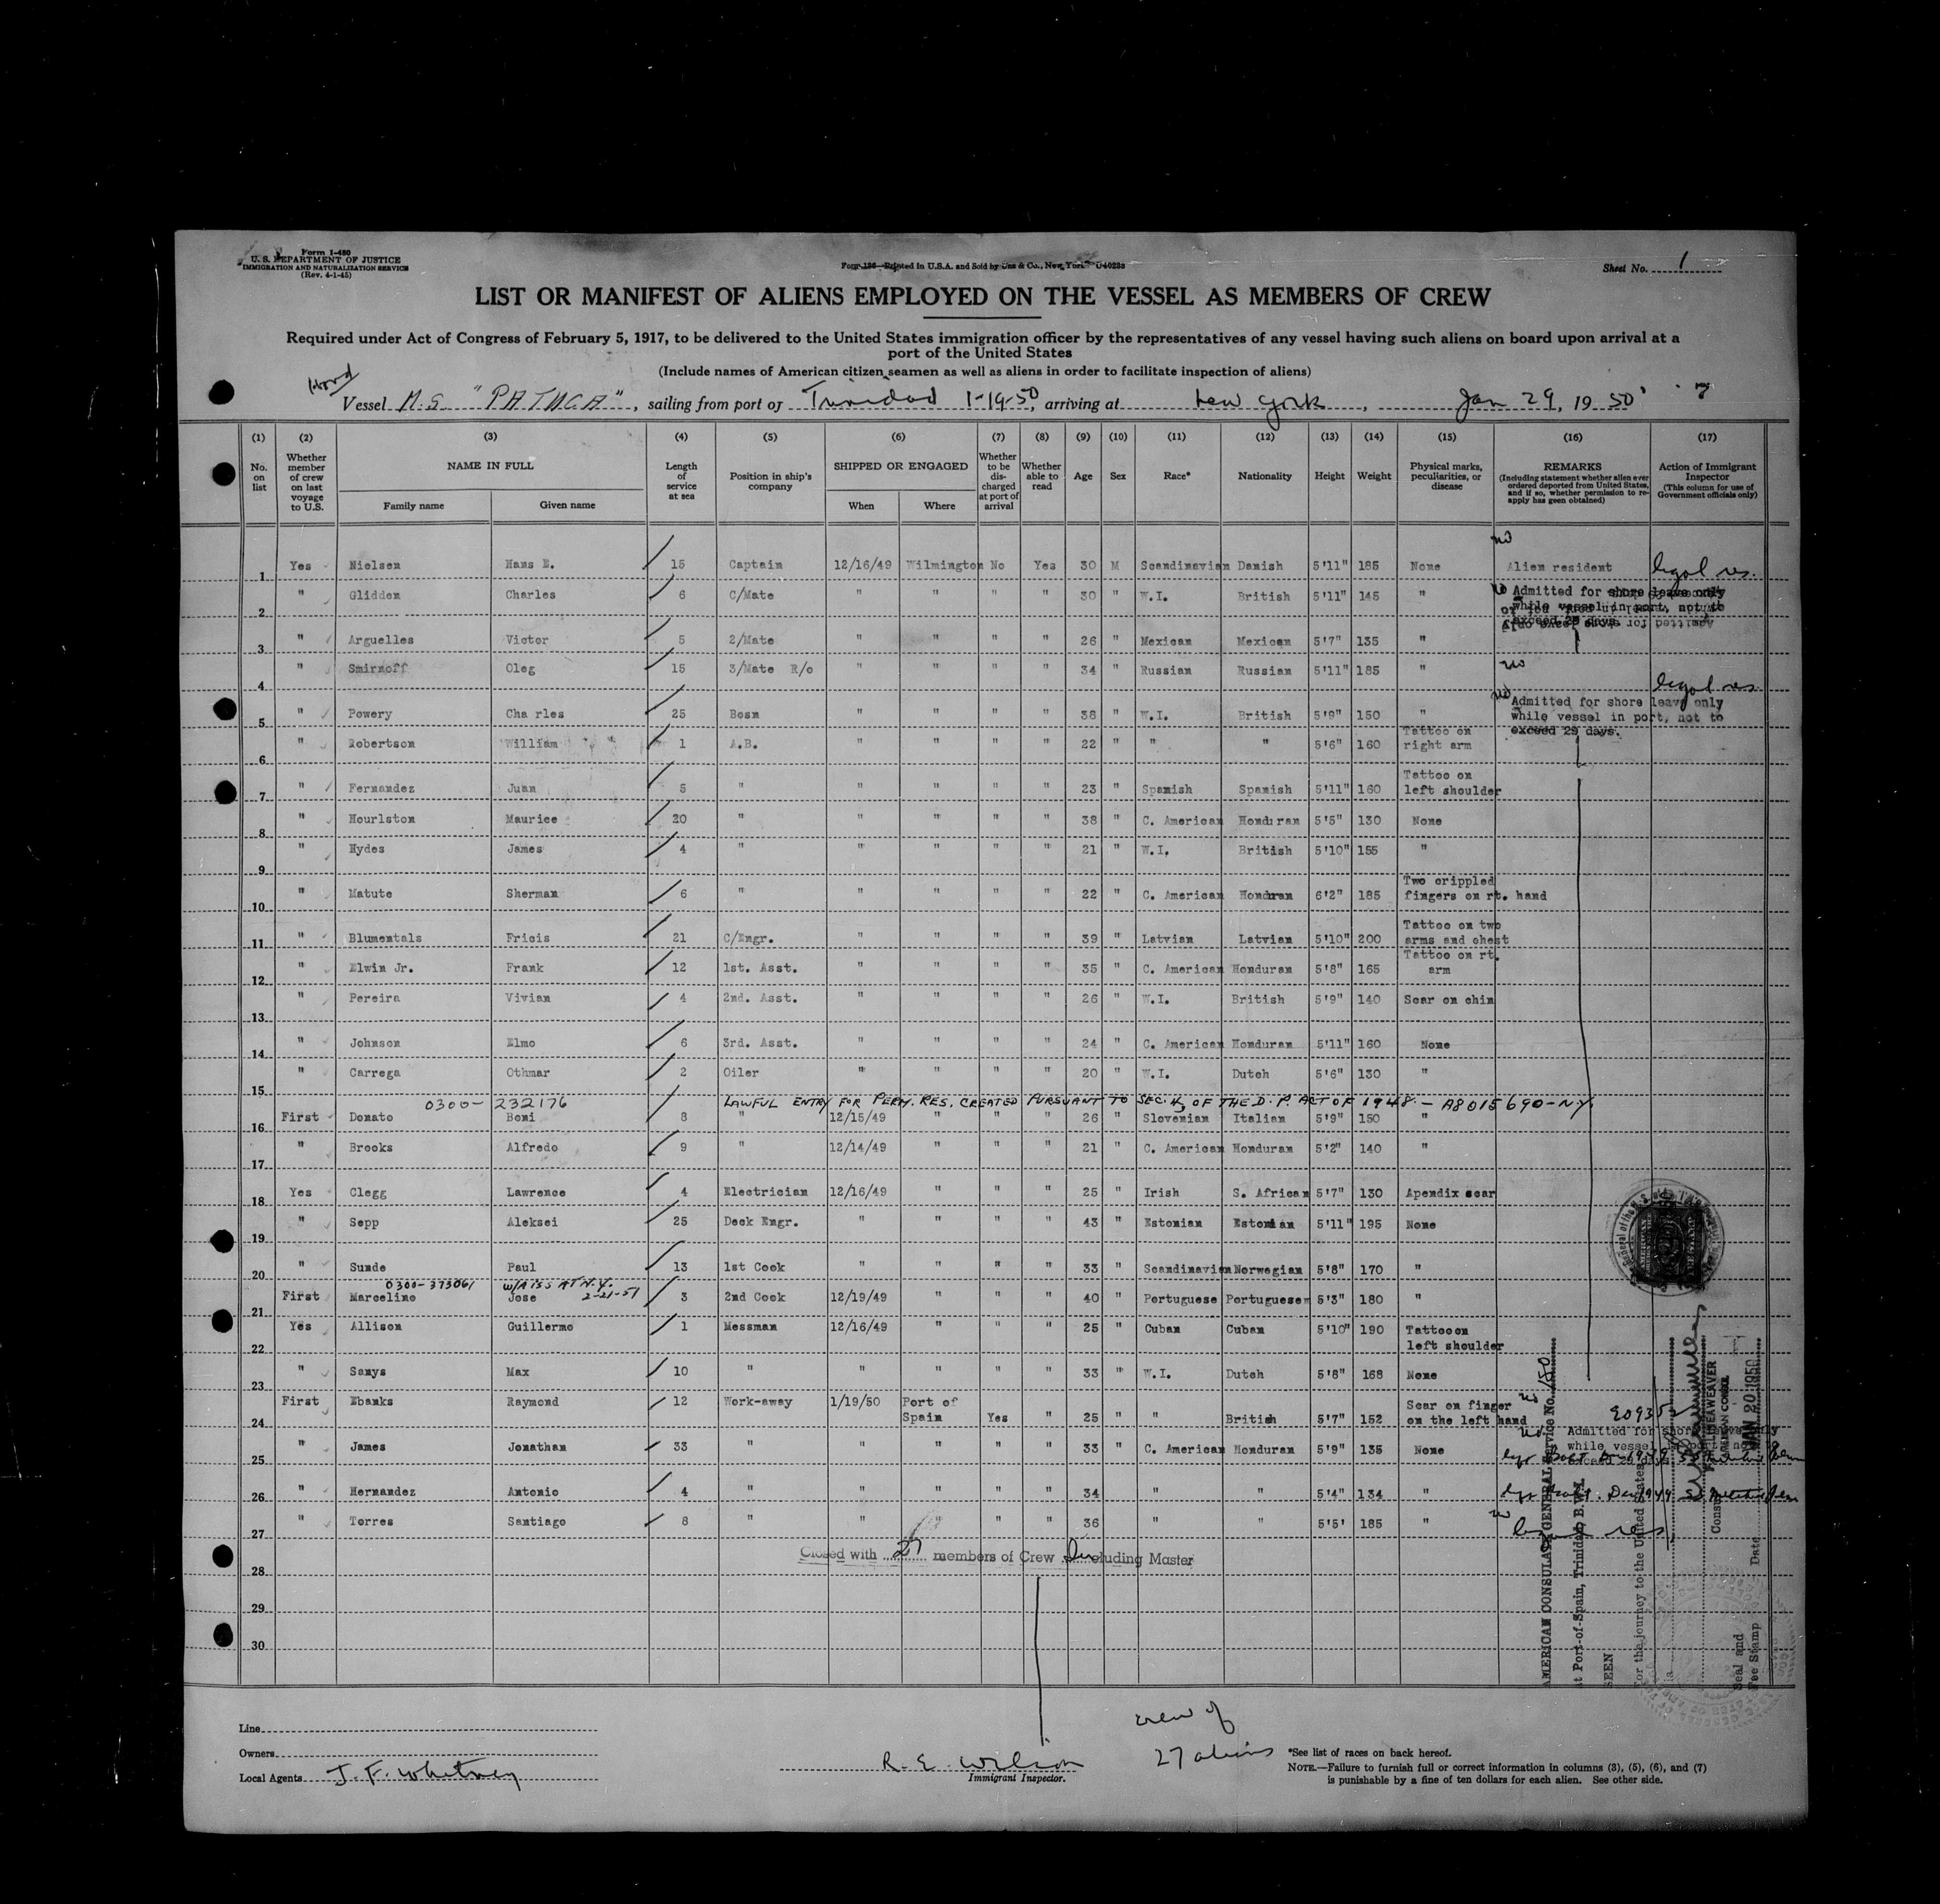 Form I-480
U. S. DEPARTMENT OF JUSTICE
IMMIGRATION AND NATURALIZATION SERVICE
(Rev. 4-1-45)
Printed in U.S.A. and Sold by & Co., New York
Sheet No. 1
LIST OR MANIFEST OF ALIENS EMPLOYED ON THE VESSEL AS MEMBERS OF CREW
Required under Act of Congress of February 5, 1917, to be delivered to the United States immigration officer by the representatives of any vessel having such aliens on board upon arrival at a
port of the United States
(Include names of American citizen seamen as well as aliens in order to facilitate inspection of aliens)
Hond Vessel M.S. "PATUCA", sailing from port of Trinidad 1-19-50, arriving at New York, Jan 29, 19 50 7
(1) (2) (3) (4) (5) (6) (7) (8) (9) (10) (11) (12) (13) (14) (15) (16) (17)
No. on list
Whether member of crew on last voyage to U.S.
NAME IN FULL
Family name Given name
Length of service at sea
Position in ship's company
SHIPPED OR ENGAGED
When Where
Whether to be discharged at port of arrival
Whether able to read
Age Sex Race* Nationality Height Weight
Physical marks, peculiarities, or disease
REMARKS
(Including statement whether alien ever ordered deported from United States, and if so, whether permission to re-apply has geen obtained)
Action of Immigrant Inspector
(This column for use of Government officials only)
1 Yes Nielsen Hans E. 15 Captain 12/16/49 Wilmington No Yes 30 M Scandinavian Danish 5'11" 185 None no Alien resident legal res.
2 " Glidden Charles 6 C/Mate " " " " 30 " W.I. British 5'11" 145 " no Admitted for shore leave only
while vessel in port, not to
exceed 29 days.
3 " Arguelles Victor 5 2/Mate " " " " 26 " Mexican Mexican 5'7" 135 "
4 " Smirnoff Oleg 15 3/Mate R/o " " " " 34 " Russian Russian 5'11" 185 " no legal res.
5 " Powery Cha rles 25 Bosn " " " " 38 " W.I. British 5'9" 150 " no Admitted for shore leave only
while vessel in port, not to
exceed 29 days.
6 " Robertson William 1 A.B. " " " " 22 " " " 5'6" 160 Tattoo on
right arm
7 " Fernandez Juan 5 " " " " " 23 " Spanish Spanish 5'11" 160 Tattoo on
left shoulder
8 " Hourlston Maurice 20 " " " " " 38 " C. American Honduran 5'5" 130 None
9 " Hydes James 4 " " " " " 21 " W.I. British 5'10" 155 "
10 " Matute Sherman 6 " " " " " 22 " C. American Honduran 6'2" 185 Two crippled
fingers on rt. hand
11 " Blumentals Fricis 21 C/Engr. " " " " 39 " Latvian Latvian 5'10" 200 Tattoo on two
arms and chest
12 " Elwin Jr. Frank 12 1st. Asst. " " " " 35 " C. American Honduran 5'8" 165 Tattoo on rt.
arm
13 " Pereira Vivian 4 2nd. Asst. " " " " 26 " W.I. British 5'9" 140 Scar on chin
14 " Johnson Elmo 6 3rd. Asst. " " " " 24 " C. American Honduran 5'11" 160 None
15 " Carrega Othmar 2 Oiler " " " " 20 " W.I. Dutch 5'6" 130 "
0300-232176 LAWFUL ENTRY FOR PERM. RES. CREATED PURSUANT TO SEC. 4, OF THE D.P. ACT OF 1948. - A8015690-N.Y.
16 First Donato Boni 8 " 12/15/49 " " " 26 " Slovenian Italian 5'9" 150 "
17 " Brooks Alfredo 9 " 12/14/49 " " " 21 " C. American Honduran 5'2" 140 "
18 Yes Clegg Lawrence 4 Electrician 12/16/49 " " " 25 " Irish S. African 5'7" 130 Apendix scar
19 " Sepp Aleksei 25 Deck Engr. " " " " 43 " Estonian Estonian 5'11" 195 None
20 " Sunde Paul 13 1st Cook " " " " 33 " Scandinavian Norwegian 5'8" 170 "
0300-373061 W/A ISS AT N.Y. 2-21-51
21 First Marcelino Jose 3 2nd Cook 12/19/49 " " " 40 " Portuguese Portuguese 5'3" 180 "
22 Yes Allison Guillermo 1 Messman 12/16/49 " " " 25 " Cuban Cuban 5'10" 190 Tattooon
left shoulder
23 " Sanys Max 10 " " " " " 33 " W.I. Dutch 5'8" 168 None
24 First Ebanks Raymond 12 Work-away 1/19/50 Port of
Spain Yes " 25 " " British 5'7" 152 Scar on finger
on the left hand no
25 " James Jonathan 33 " " " " " 33 " C. American Honduran 5'9" 135 None no Admitted for shore leave only
while vessel in port, not to
exceed 29 days
26 " Hernandez Antonio 4 " " " " " 34 " " " 5'4" 134 "
27 " Torres Santiago 8 " " " " " 36 " " 5'5' 185 " no legal res.
Closed with 27 members of Crew Including Master
28
29
30
AMERICAN CONSULATE GENERAL Service No. 150
at Port-of-Spain, Trinidad, B.W.I.
SEEN
For the journey to the United States
LINEAWEAVER
AMERICAN CONSUL
Consul
Date JAN 20 1950
Seal and
Fee Stamp
Line
Owners
Local Agents J. F. Whitney
R. E. Wilson
Immigrant Inspector.
crew of
27 aliens
*See list of races on back hereof.
NOTE.—Failure to furnish full or correct information in columns (3), (5), (6), and (7)
is punishable by a fine of ten dollars for each alien. See other side.